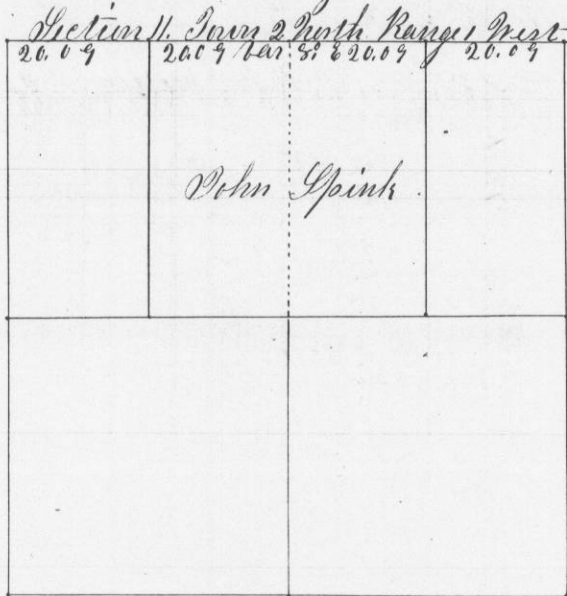 Section 11. Town 2 North Range 1 West
20.09 20.09 Var 3° E 20.09 20.09
John Spink